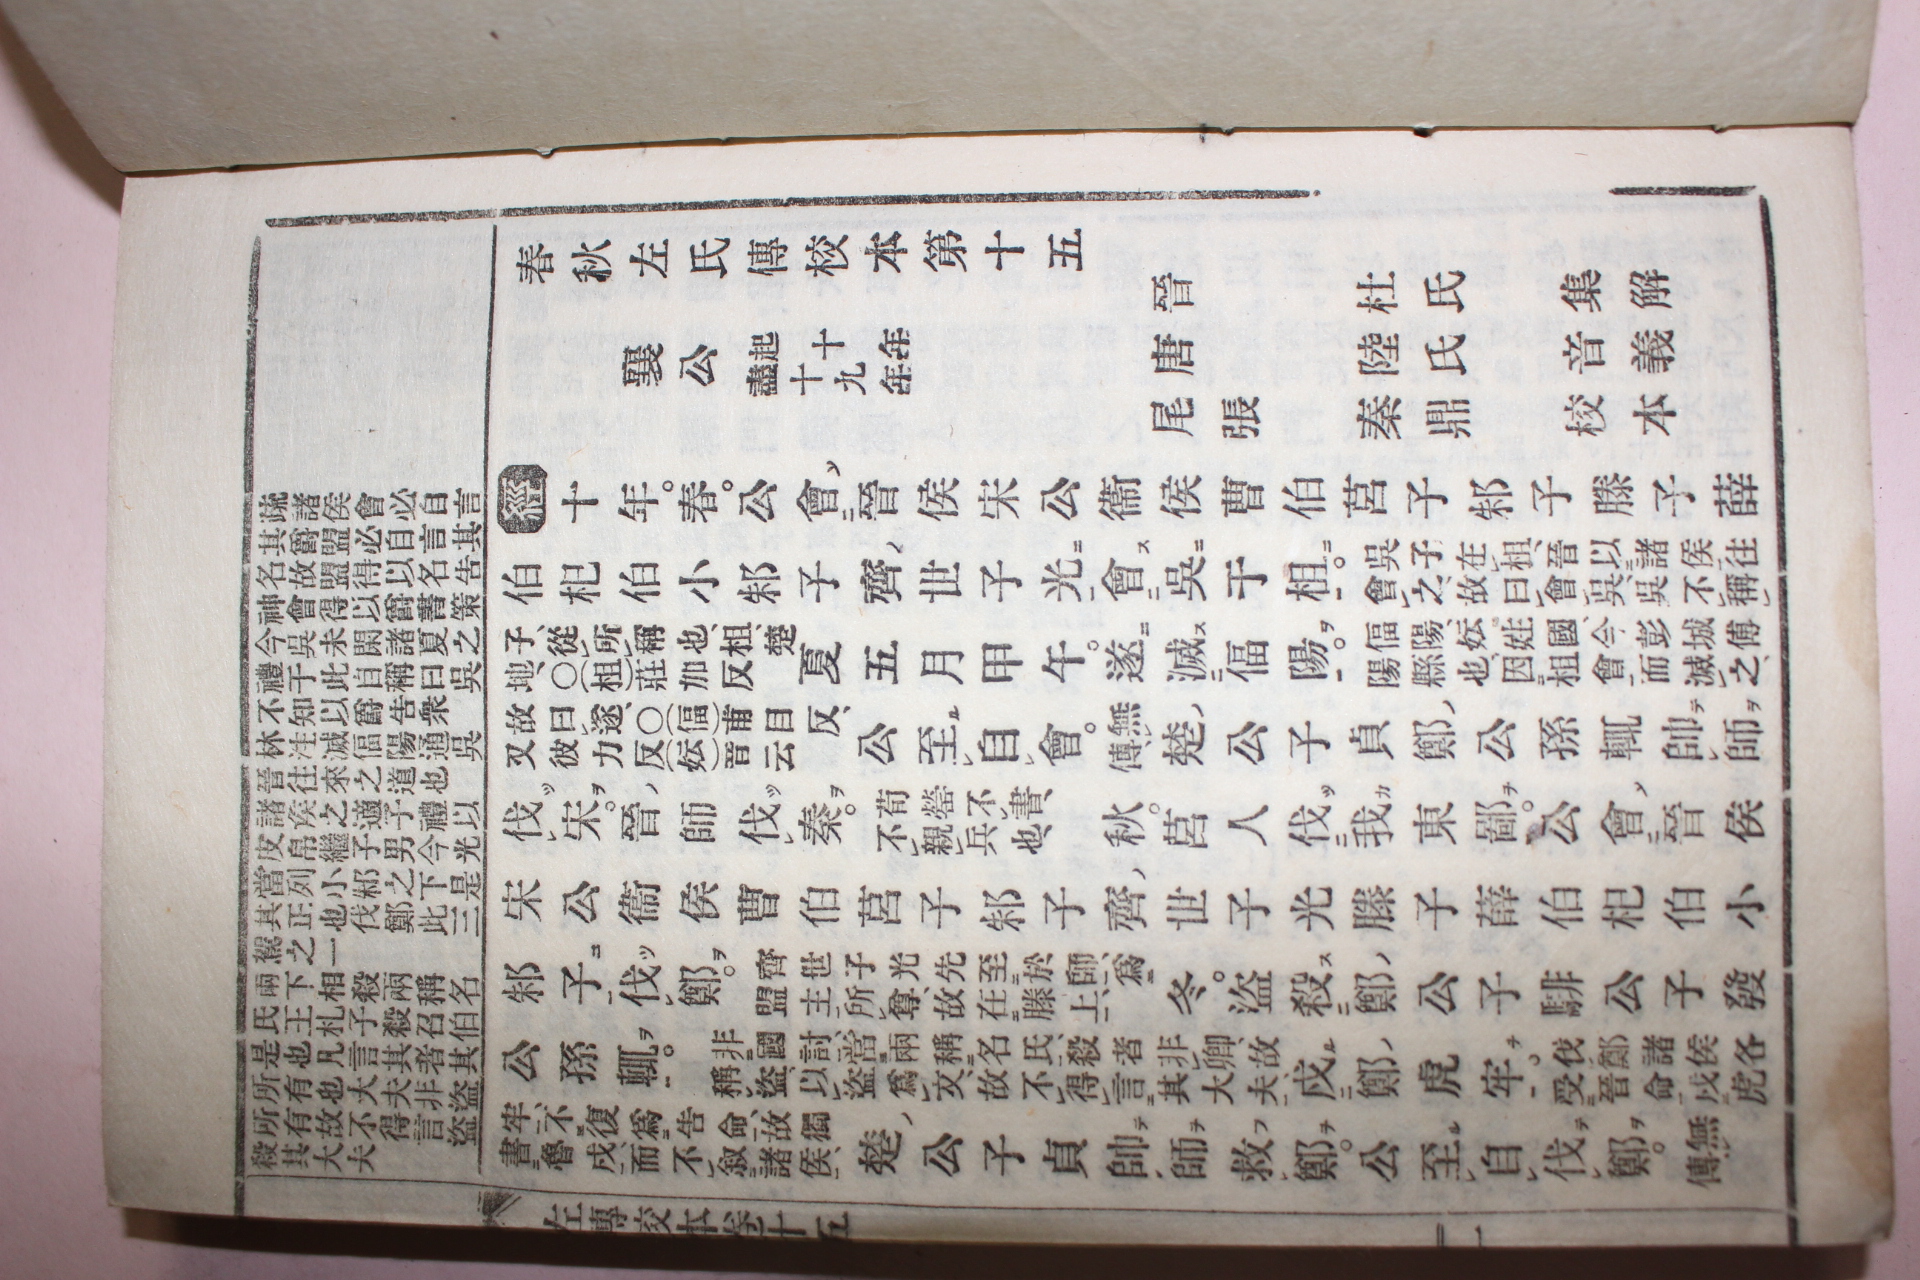 春秋左氏傳校本第十五
晉 杜氏 集解
襄公 起十年盡十九年 唐 陸氏 音義
尾張 秦鼎 校本
經十年。春。公會晉侯宋公衞侯曹伯莒子邾子滕子薛
伯杞伯小邾子齊世子光會吳于柤。吳子在柤、晉以諸侯往會之、故曰會吳、吳不稱
子、從所稱也、柤、楚地、〇(柤)莊加反 夏五月甲午。遂滅偪陽。偪陽、妘姓國、今彭城傅陽縣也、因柤會而滅之、
故曰遂、〇(偪)甫目反、又彼力反(妘)音云 公至自會。無傳、 楚公子貞鄭公孫輒帥師
伐宋。晉師伐秦。荀罃不書、不親兵也、 秋。莒人伐我東鄙。公會晉侯
宋公衞侯曹伯莒子邾子齊世子光滕子薛伯杞伯小
邾子伐鄭。齊世子光先至於師、爲盟主所尊、故在滕上、 冬。盜殺鄭公子騑公子發
公孫輒。非國討、當兩稱名氏、殺者非卿、故稱盜、以盜爲文、故不得言其大夫、 戍鄭虎牢。伐鄭諸侯各受晉命戍虎
牢、不復爲告命、故獨書魯戍、而不敘諸侯、 楚公子貞帥師救鄭。公至自伐鄭。無傳、
疏諸侯會必自言
其爵盟必自言其
名故盟得以名告
神會得以爵書策
今吳未閑諸夏之
禮于此自稱曰吳
不知以爵告衆
林注滅偪陽通吳
晉往來之道也
諸矦之適子禮以
皮帛繼子男今光
當列小邾之下是
其正也伐鄭此三
駕之一
兩下相殺兩稱名
氏王札子殺召伯
是也凡言其者其
所有也大夫非盜
所有故不得言盜
殺其大夫
左傳校本卷十五 一